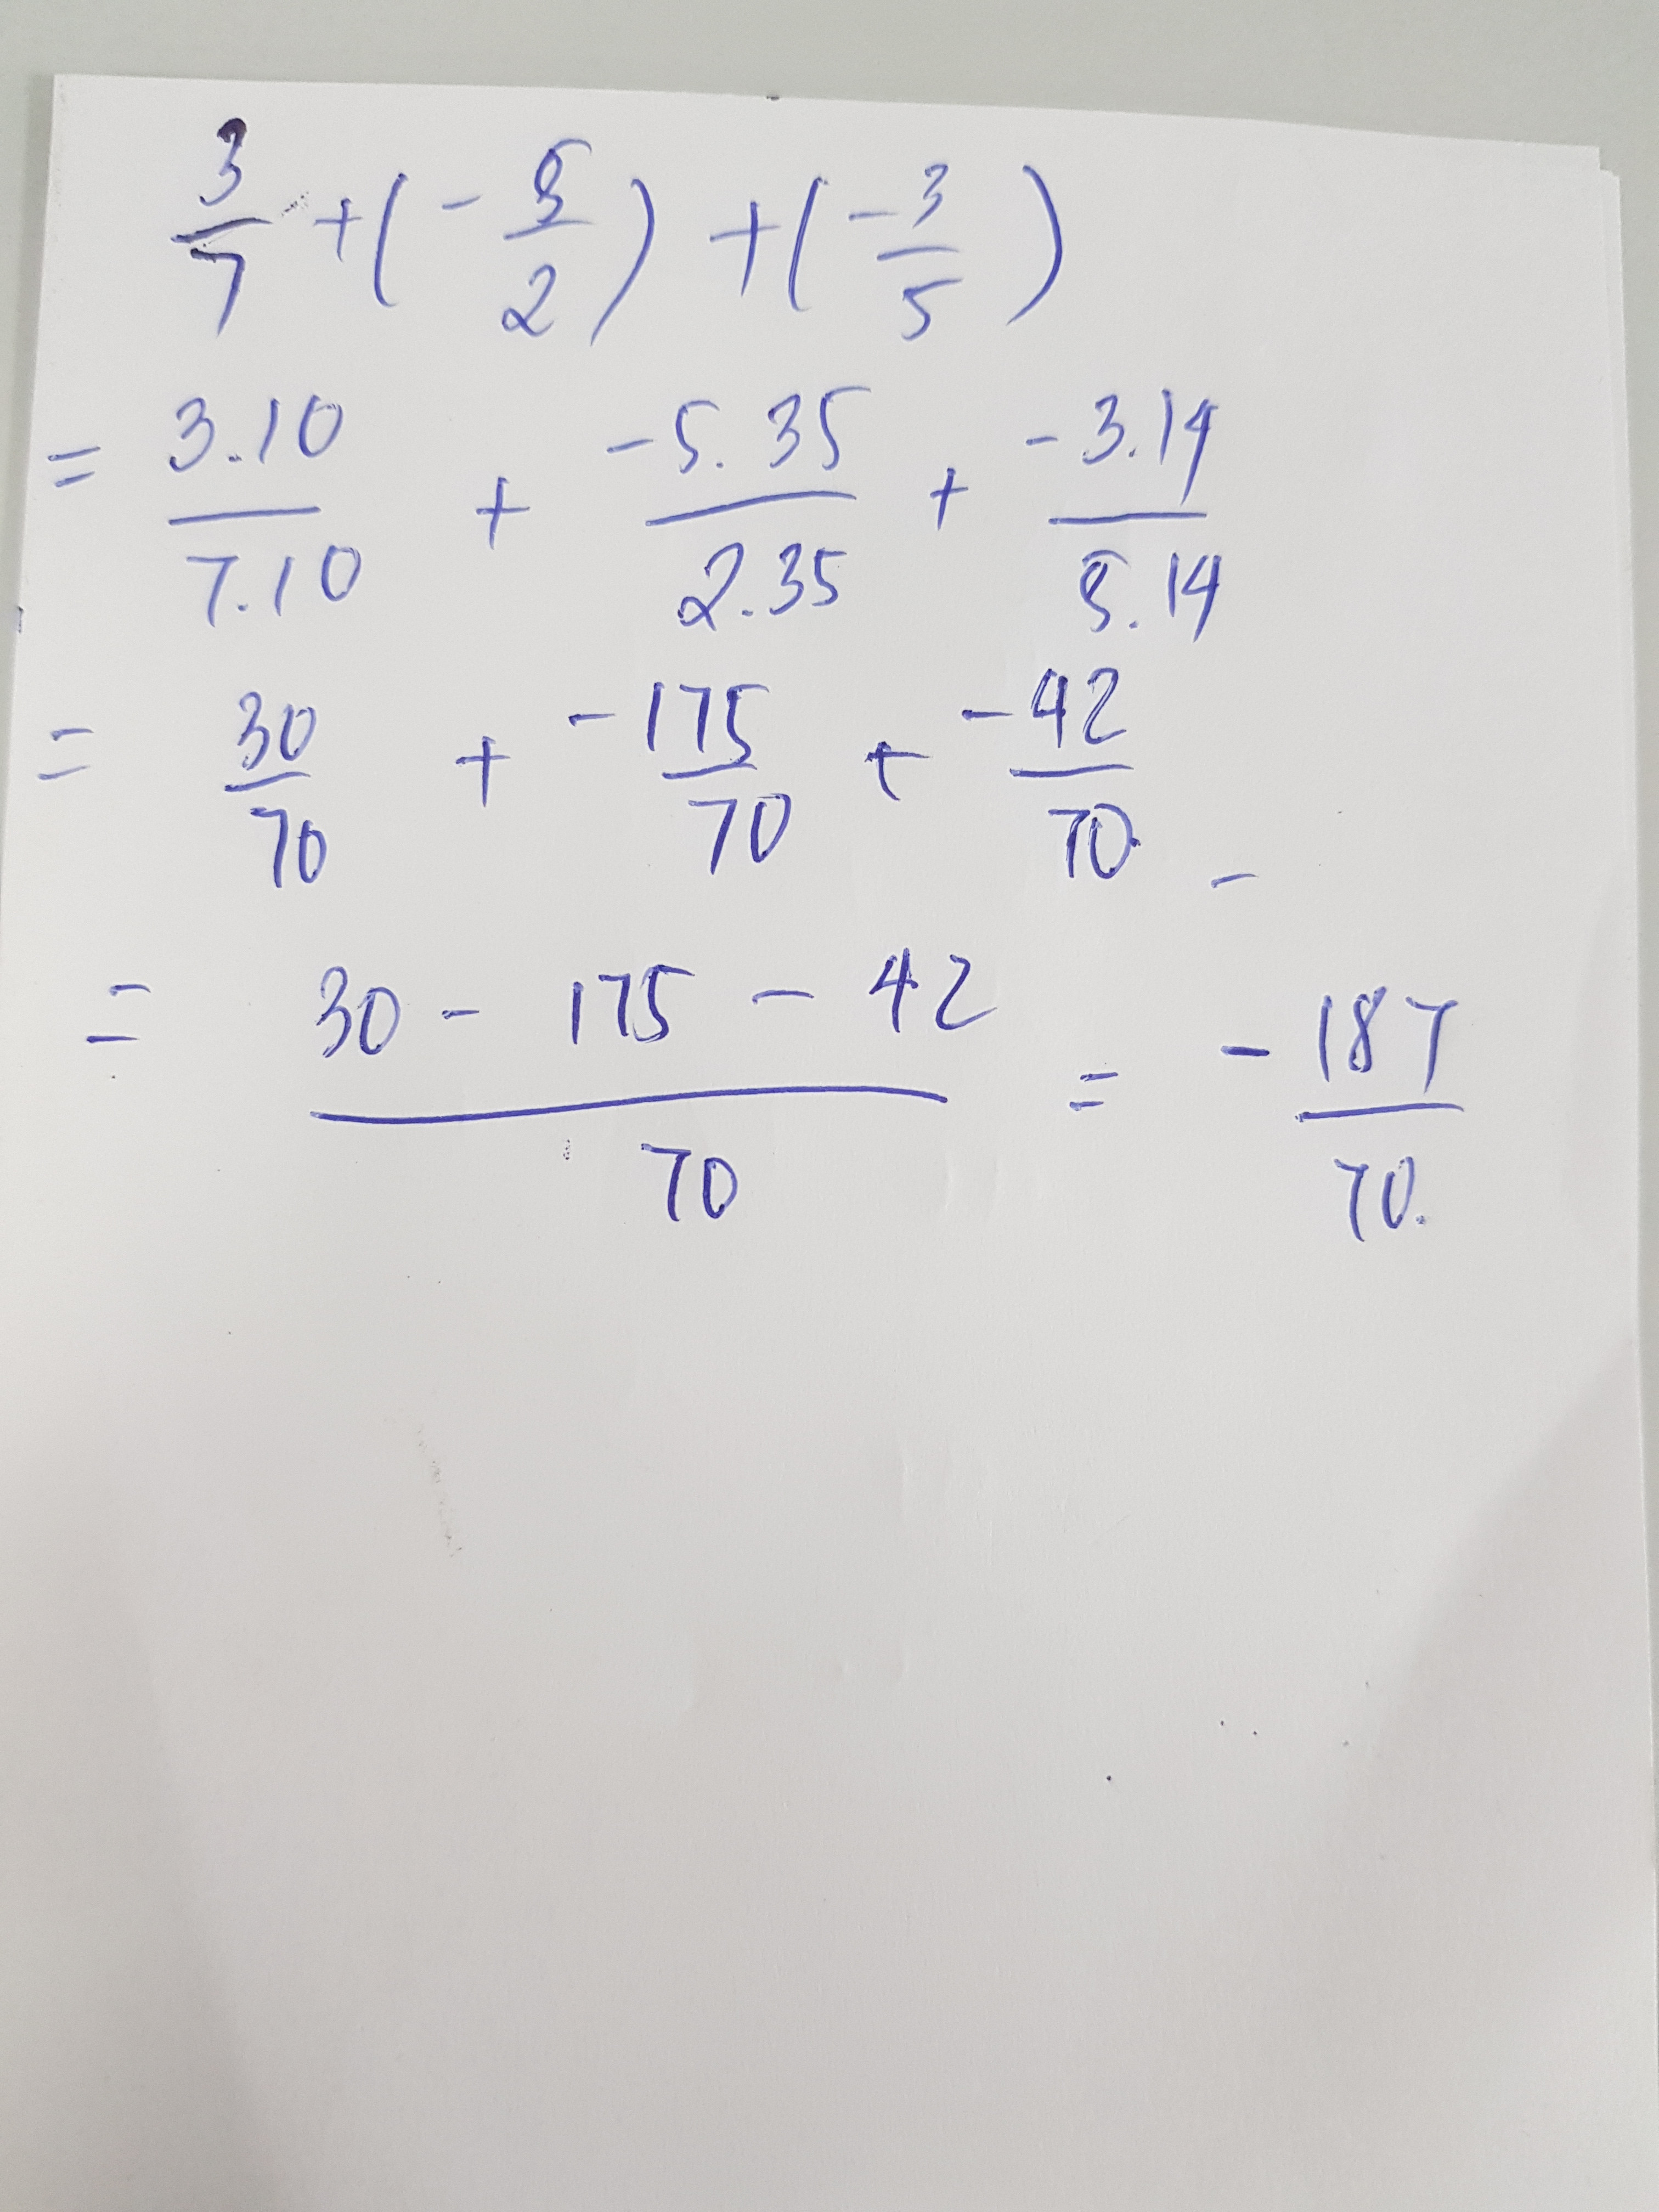 3/7 + (-5/2) + (-3/5)
= 3.10/7.10 + -5.35/2.35 + -3.14/5.14
= 30/70 + -175/70 + -42/70
= 30 - 175 - 42/70 = -187/70.